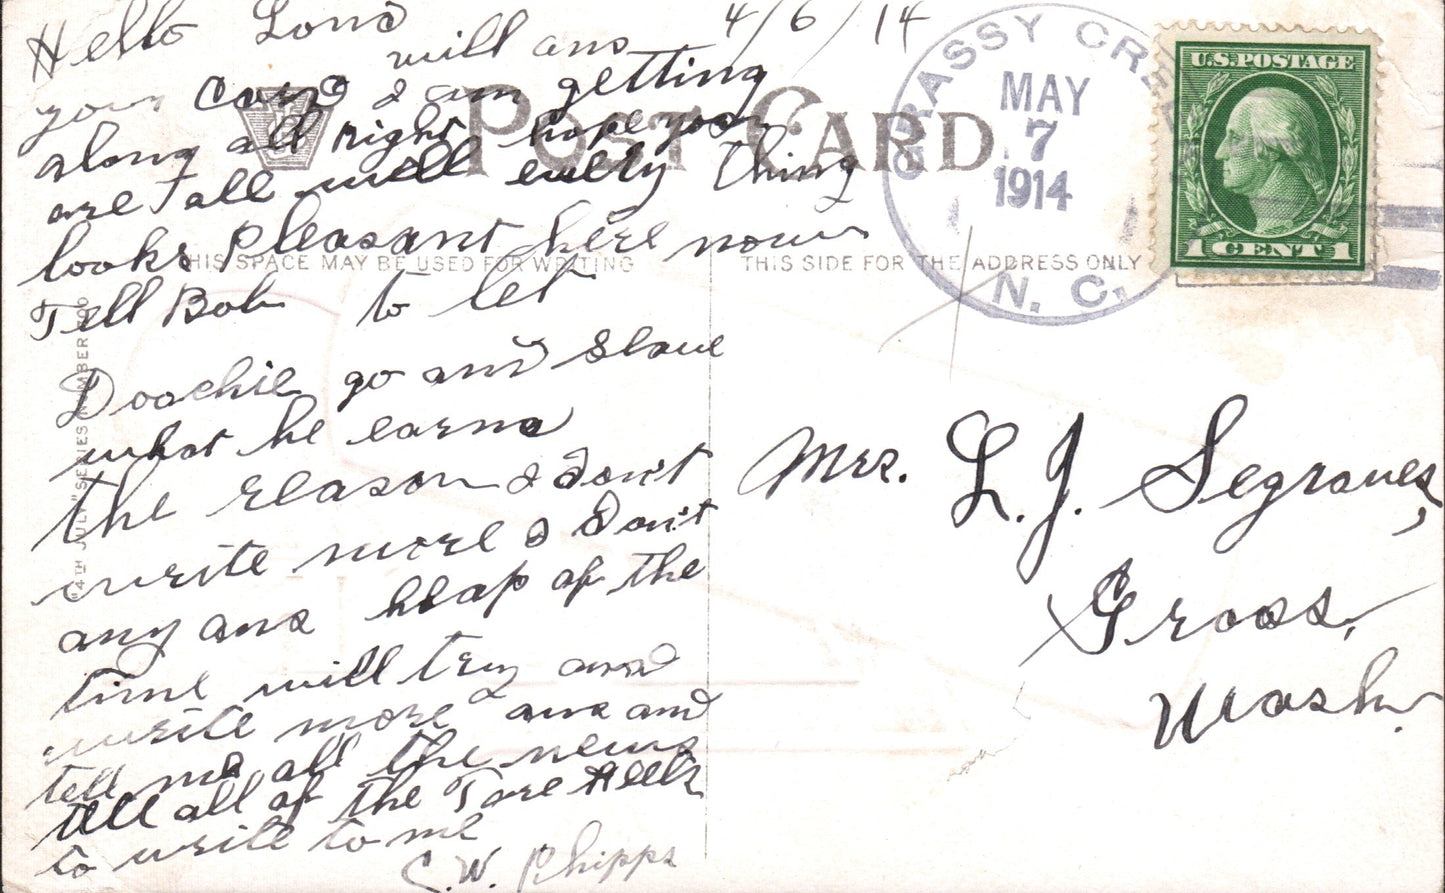 Hello Lona 4/6/14
will ans
your card I am getting
along all right hope you
are all well every thing
looks pleasant here now
Tell Bob to let
Doochie go and slave
what he earns
the reason I don't
write more I don't
any ans heap of the
time will try and
write more ans and
tell me all the news
tell all of the Tare Heels
to write to me
C.W. Phipps
POST CARD
THIS SPACE MAY BE USED FOR WRITING
THIS SIDE FOR THE ADDRESS ONLY
"4TH JULY" SERIES NUMBER
GRASSY CREEK
MAY
7
1914
N. C.
U.S. POSTAGE
1 CENT 1
Mrs. L. J. Segraves,
Gross,
Wash.